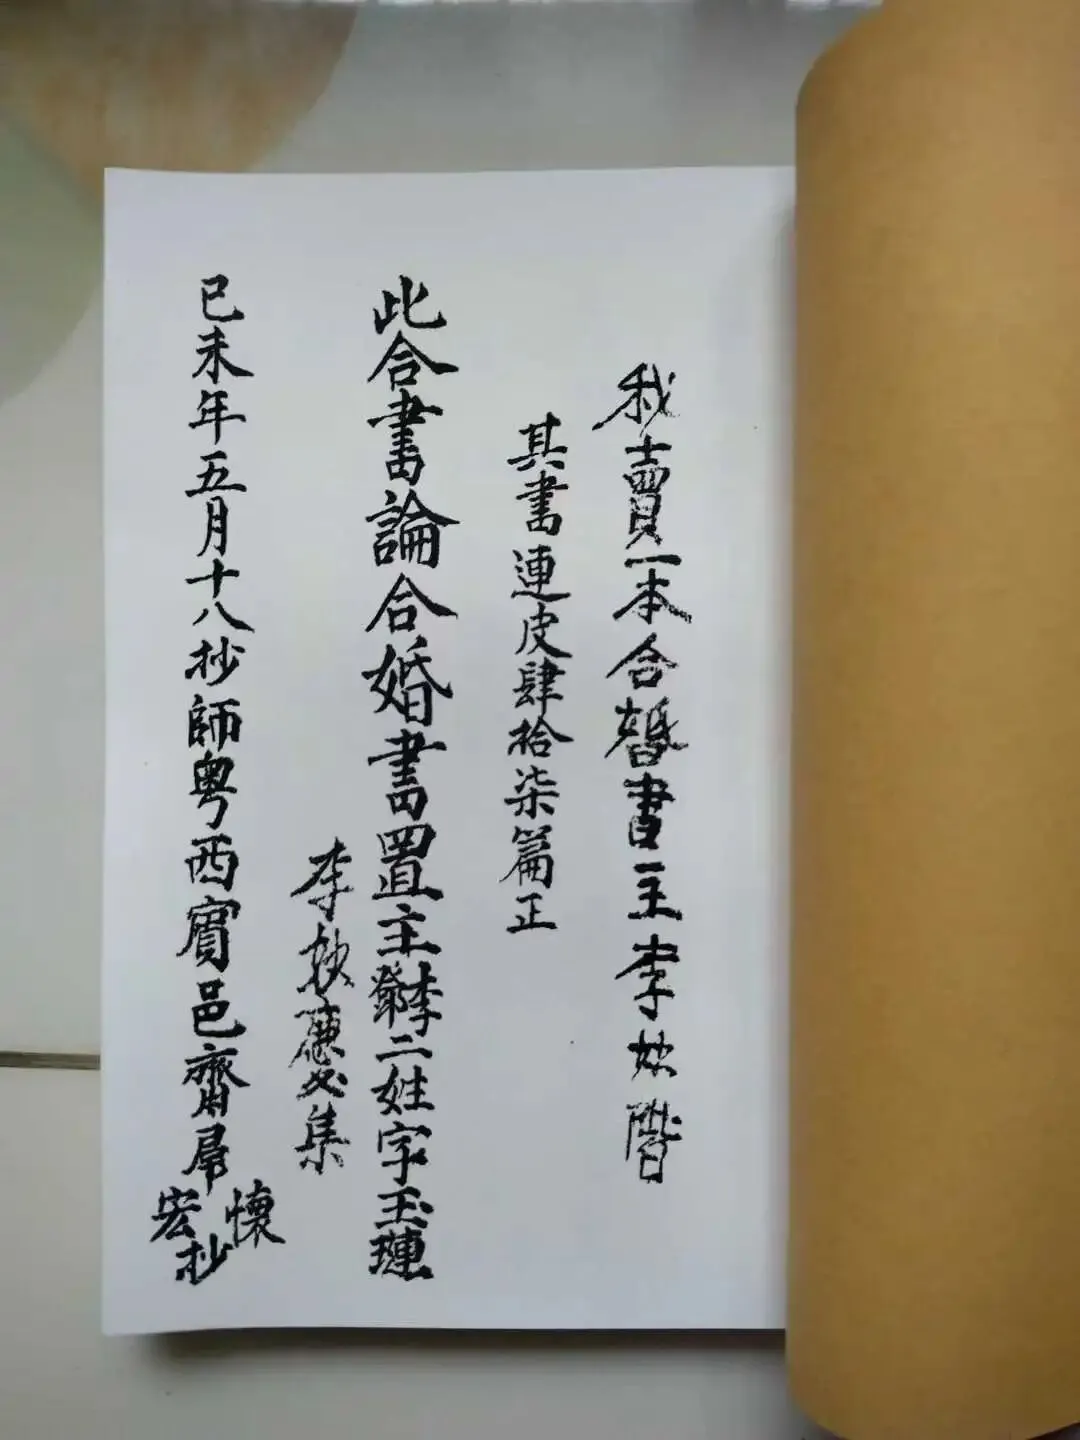 我賣一本合婚書主李妙階
其書連皮肆拾柒篇正
此合書論合婚書置主鄧李二姓字玉璉
李妙應集
已未年五月十八抄師粵西賓邑齋
懷宏抄